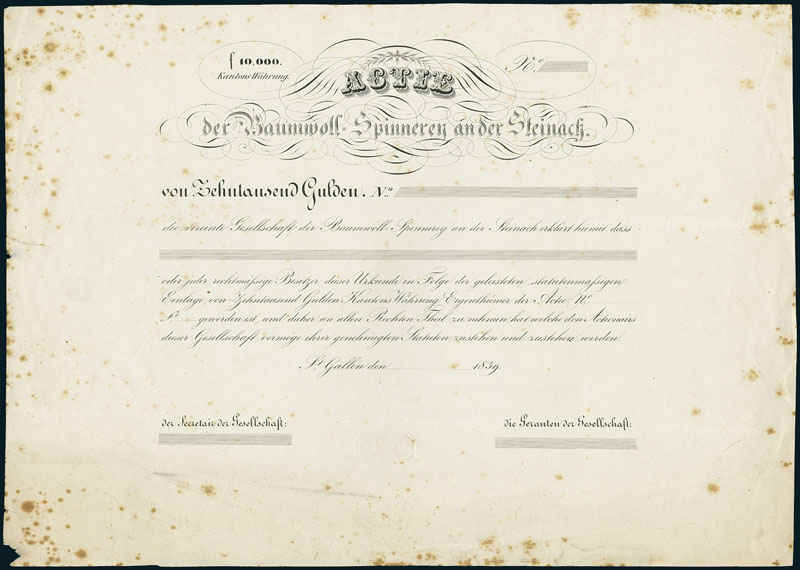 f 10,000.
Kantons Währung.
N.º
ACTIE
der Baumwoll-Spinnerey an der Steinach.
von Zehntausend Gulden. N.º
die vereinte Gesellschaft der Baumwoll-Spinnerey an der Steinach erklärt hiemit, dass
oder jeder rechtmässige Besitzer dieser Urkunde in Folge der geleisteten statutenmässigen
Einlage von Zehntausend Gulden Kantons Währung Eigenthümer der Actie N.º
geworden ist, und daher an allen Rechten Theil zu nehmen hat welche den Actionairs
dieser Gesellschaft vermöge ihrer genehmigten Statuten zustehen und zustehen werden.
St Gallen den 1839.
der Secretair der Gesellschaft:
die Geranten der Gesellschaft: